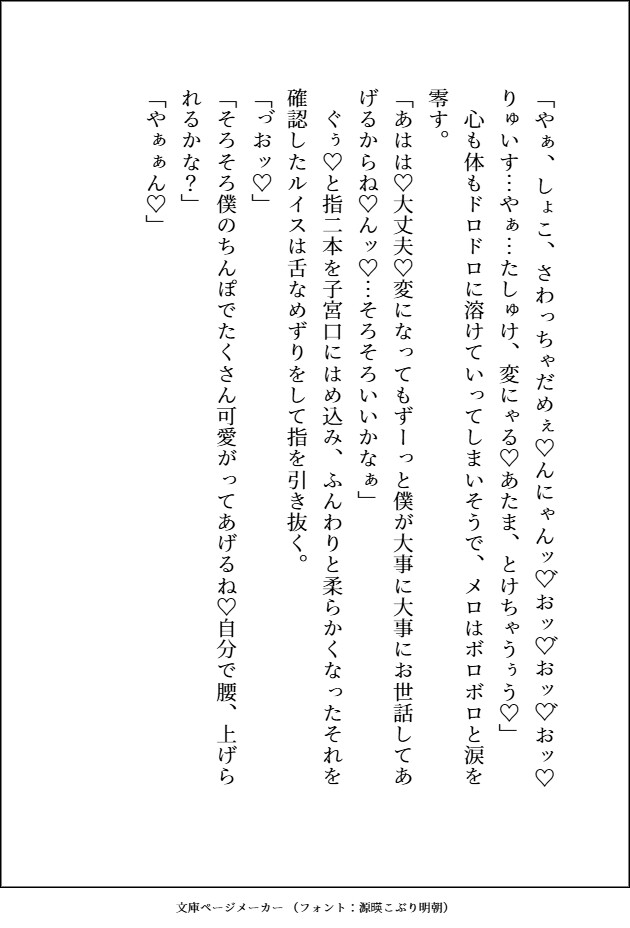 「やぁ、しょこ、さわっちゃだめぇ♡んにゃんッ♡゛おッ♡゛おッ♡゛おッ♡
りゅいす…やぁ…たしゅけ、変にゃる♡あたま、とけちゃうぅう♡」
　心も体もドロドロに溶けていってしまいそうで、メロはボロボロと涙を
零す。
「あはは♡大丈夫♡変になってもずーっと僕が大事に大事にお世話してあ
げるからね♡んッ♡…そろそろいいかなぁ」
　ぐぅ♡と指二本を子宮口にはめ込み、ふんわりと柔らかくなったそれを
確認したルイスは舌なめずりをして指を引き抜く。
「づおッ♡」
「そろそろ僕のちんぽでたくさん可愛がってあげるね♡自分で腰、上げら
れるかな？」
「やぁぁん♡」
文庫ページメーカー（フォント：源暎こぶり明朝）